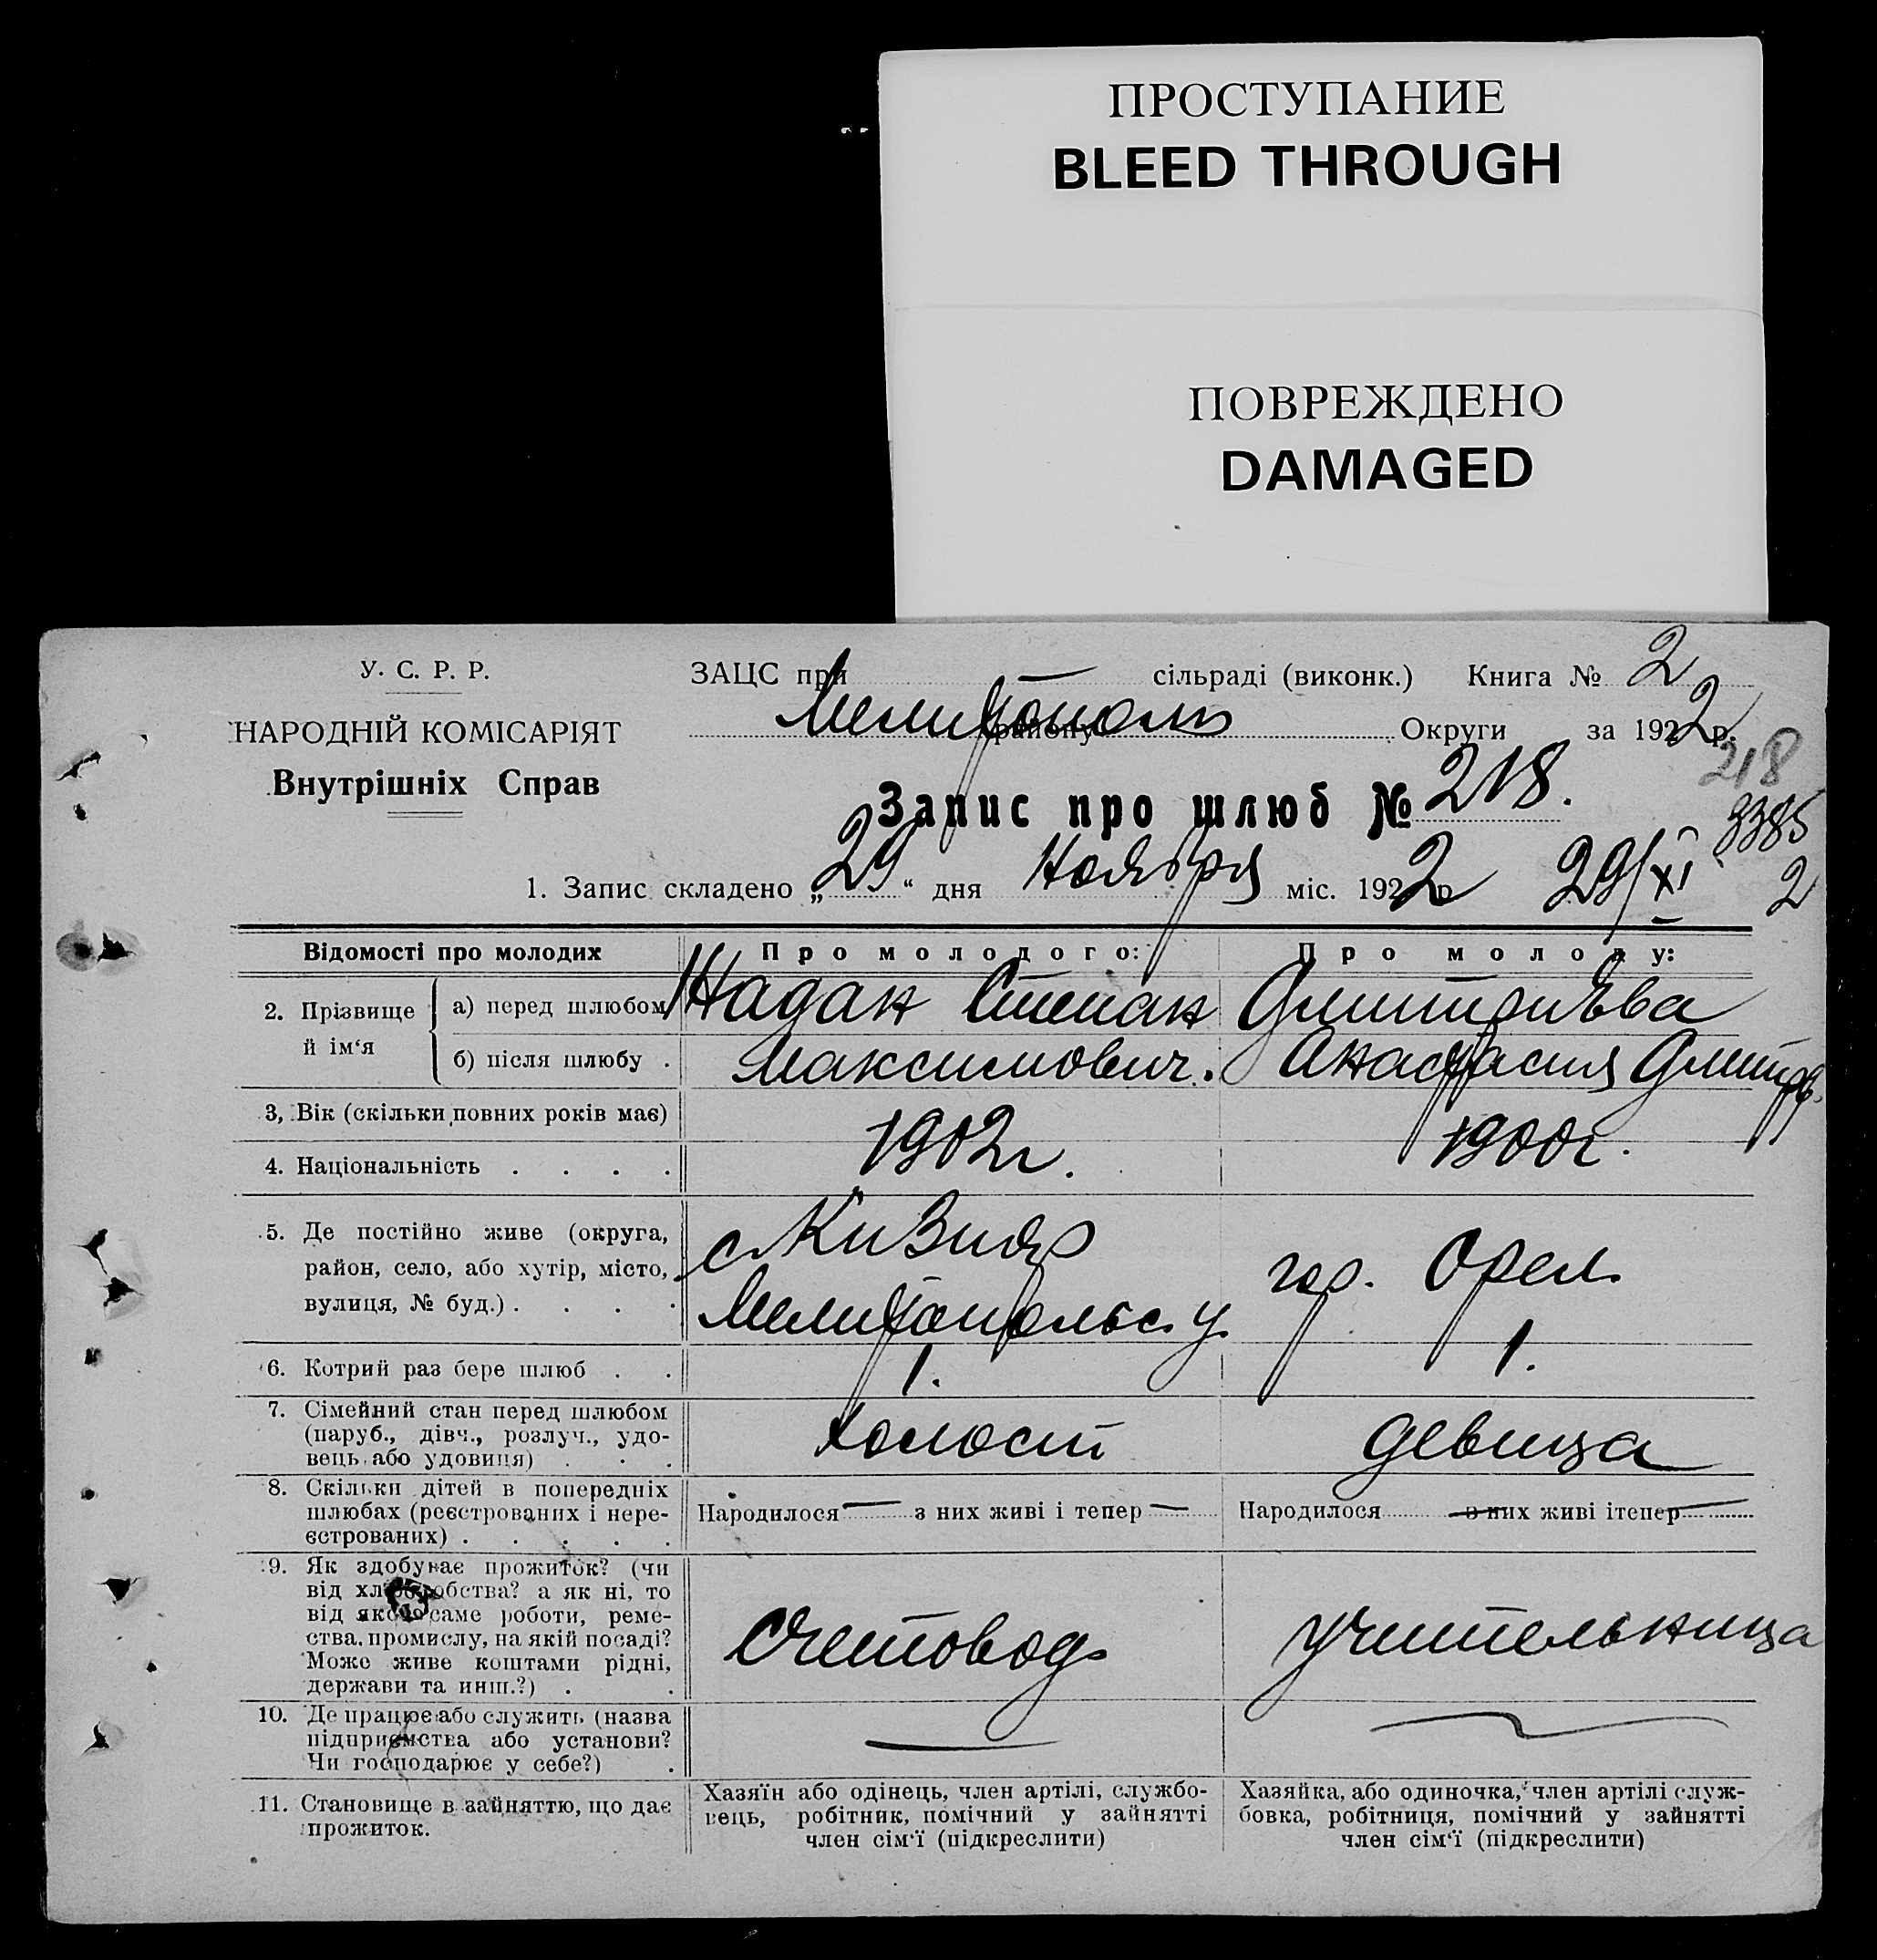 ПРОСТУПАНИЕ
BLEED THROUGH
ПОВРЕЖДЕНО
DAMAGED
У. С. Р. Р.
НАРОДНІЙ КОМІСАРІЯТ
Внутрішніх Справ
ЗАЦС при сільраді (виконк.) Книга № 2
Мелитополь району Округи за 1922 р.
218
Запис про шлюб № 218.
3385
1. Запис складено „29“ дня Ноября міс. 1922 р 29/XI 2
Відомості про молодих Про молодого: Про молоду:
2. Прізвище й ім‘я
а) перед шлюбом Надан Степан Дмитриева
б) після шлюбу . Максимович. Анастасия Дмитров.
3, Вік (скільки повних років має) 1902г. 1900г.
4. Національність . . . .
5. Де постійно живе (округа, с. Кизияр гор. Орел
район, село, або хутір, місто,
вулиця, № буд.) . . . . Мелитопольс. у
6. Котрий раз бере шлюб . . 1. 1.
7. Сімейний стан перед шлюбом
(паруб., дівч., розлуч., удо- холост девица
вець або удовиця) . . .
8. Скільки дітей в попередніх
шлюбах (реєстрованих і нере- Народилося — з них живі і тепер — Народилося — з них живі ітепер —
єстрованих) . . . . .
9. Як здобуває прожиток? (чи
від хліборобства? а як ні, то
від якого саме роботи, реме-
ства, промислу, на якій посаді? Счетовод Учительница
Може живе коштами рідні,
держави та инш.?) . .
10. Де працює або служить (назва
підприємства або установи? — —
Чи господарює у себе?) .
11. Становище в зайняттю, що дає
прожиток.
Хазяїн або одінець, член артілі, службо-
вець, робітник, помічний у зайнятті
член сім‘ї (підкреслити)
Хазяйка, або одиночка, член артілі служ-
бовка, робітниця, помічний у зайнятті
член сім‘ї (підкреслити)